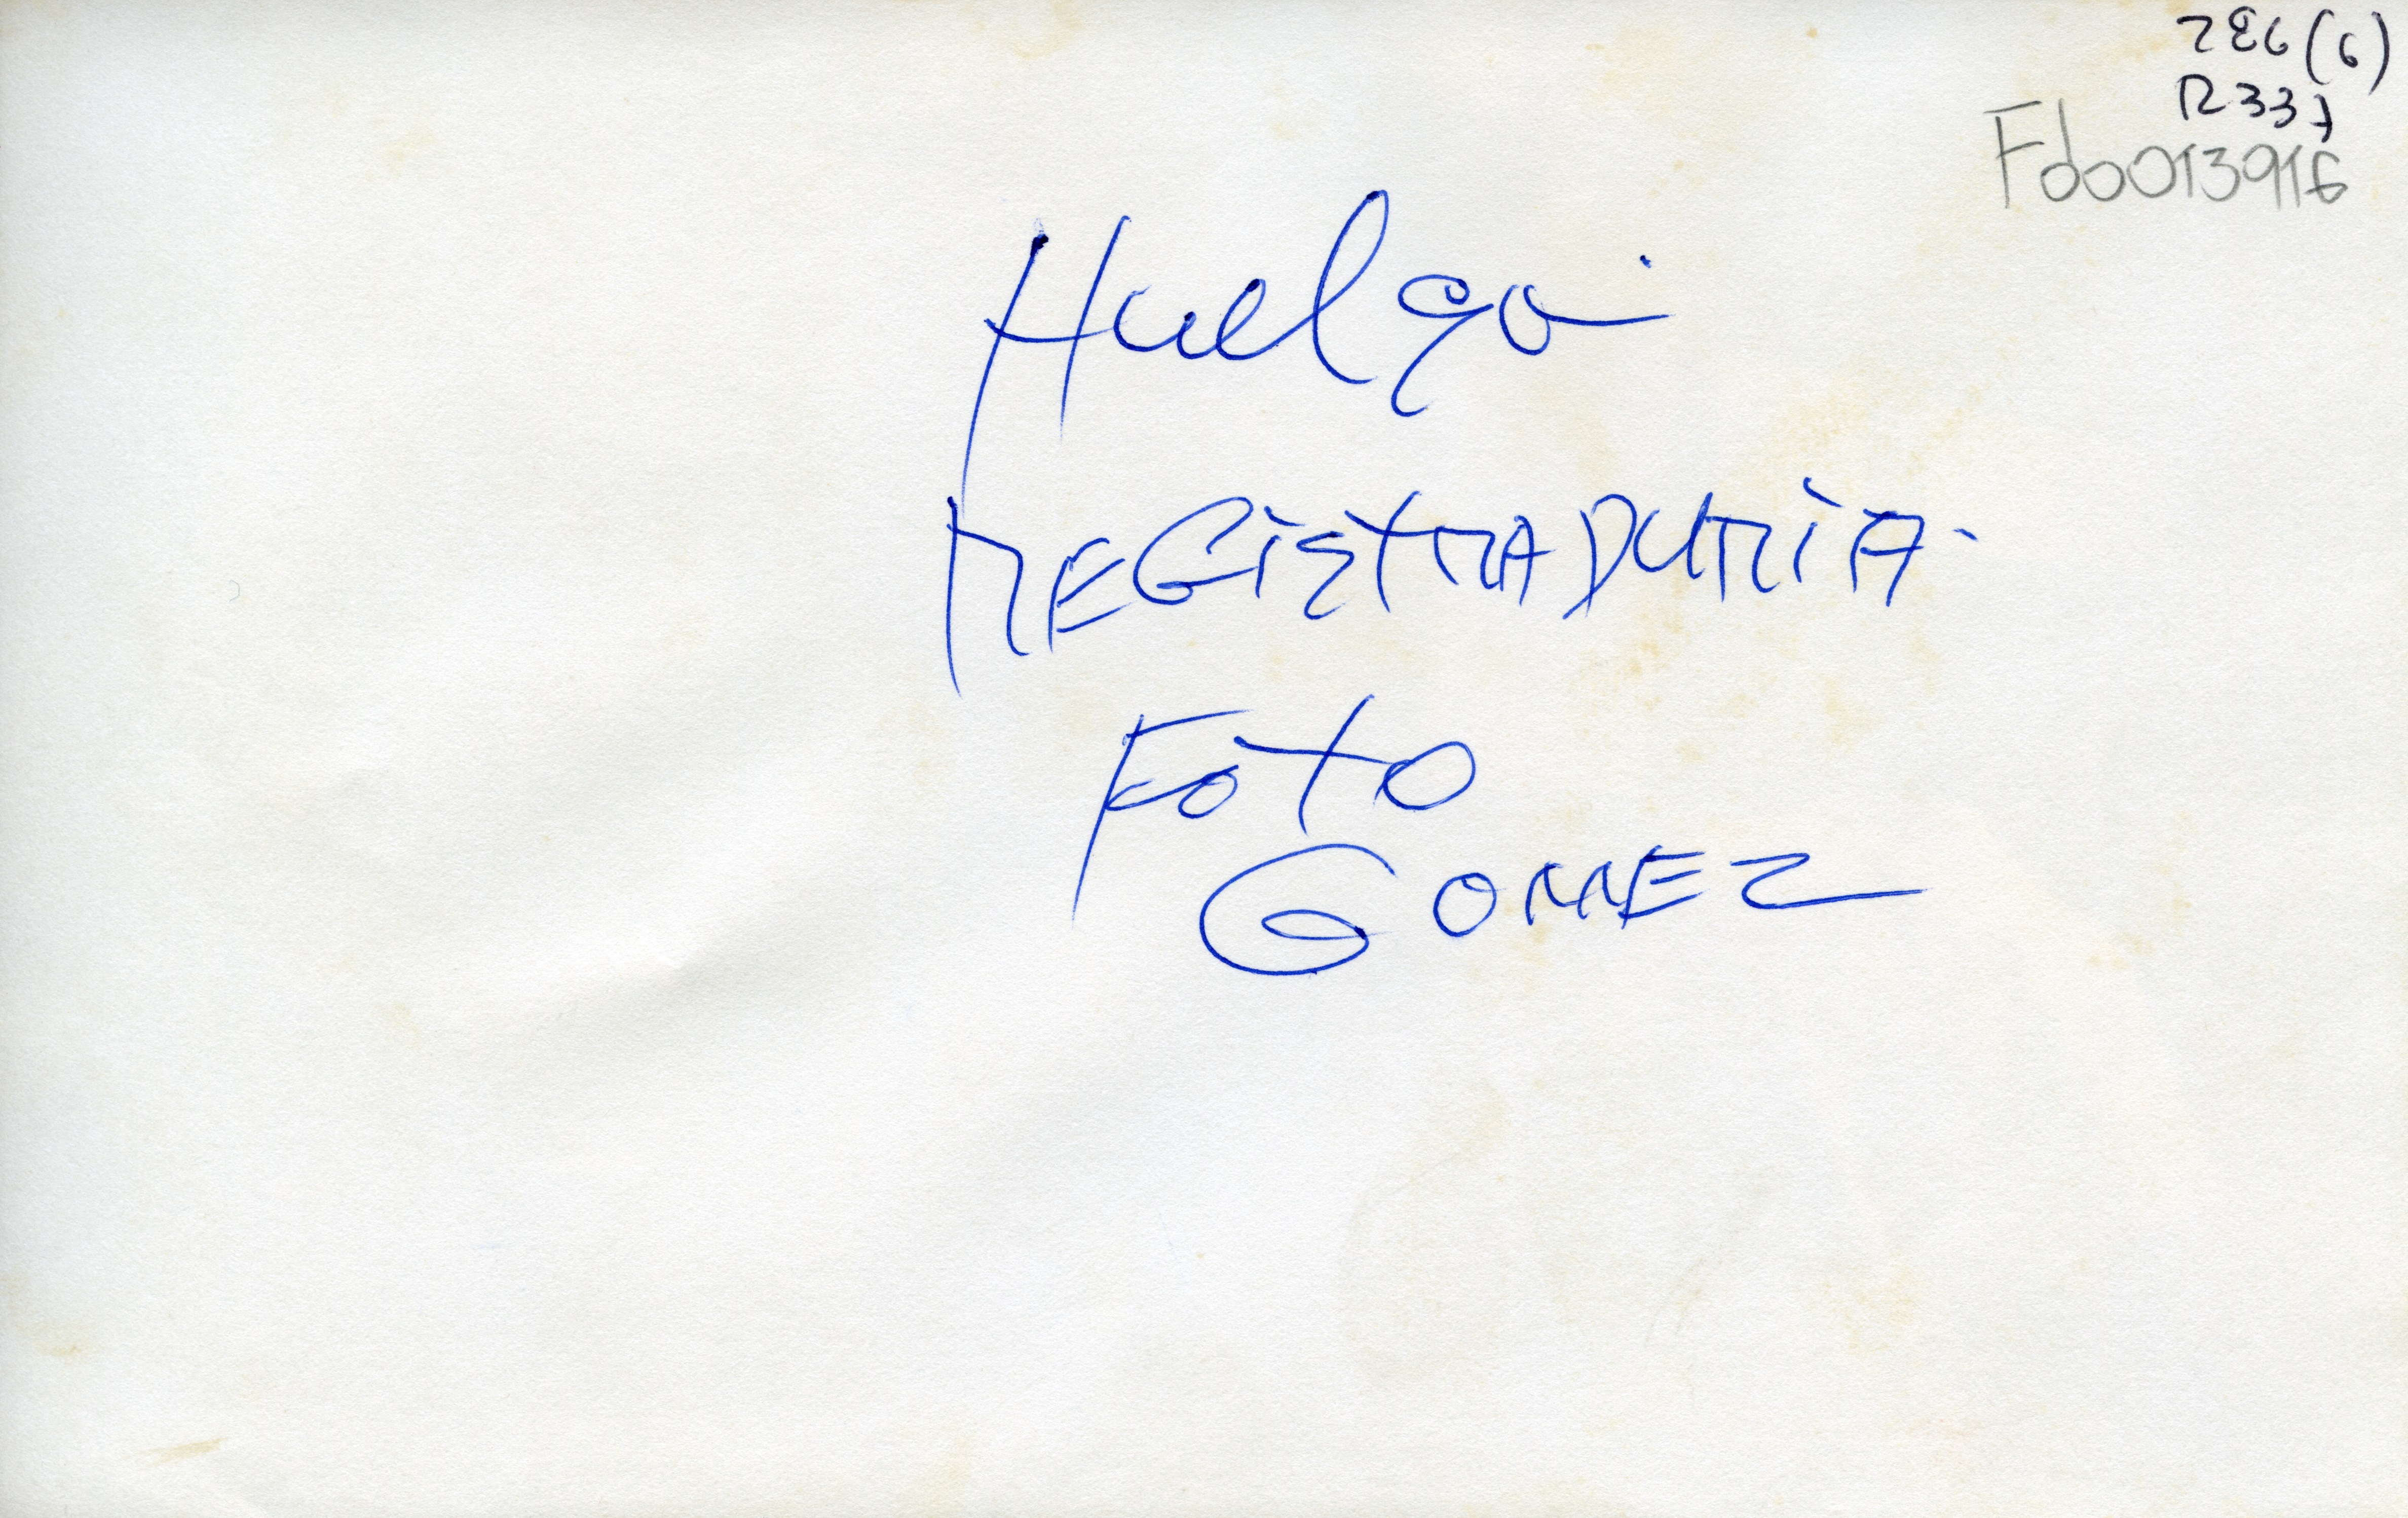 286(6)
R337
Fdo013916
Huelga
REGiStRADURiA.
Foto
GOMEZ